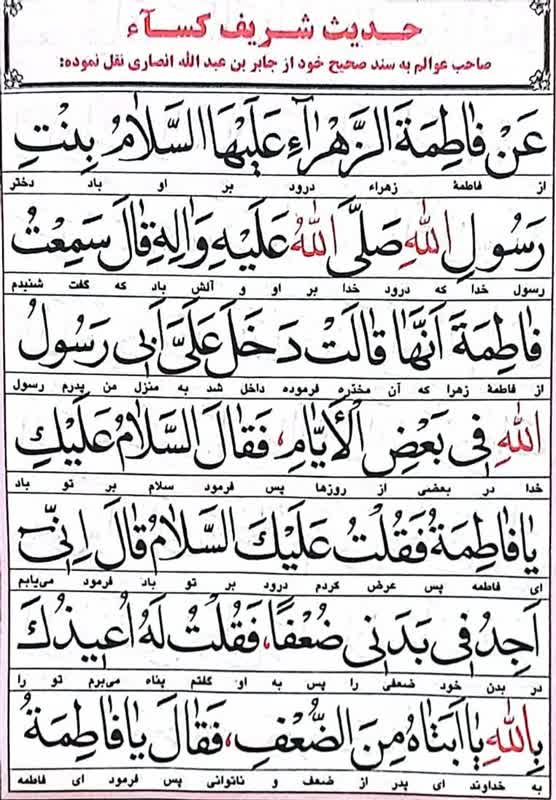 حدیث شریف کسآء
صاحب عوالم به سند صحیح خود از جابر بن عبد الله انصاری نقل نموده:
عَنْ فٰاطِمَةَ الزَّهْرٰآءِ عَلَيْهَا السَّلٰامُ بِنْتِ
از فاطمهٔ زهراء درود بر او باد دختر
رَسُولِ اللهِ صَلَّى اللهُ عَلَيْهِ وَاٰلِهِ قٰالَ سَمِعْتُ
رسول خدا که درود خدا بر او و آلش باد که گفت شنیدم
فٰاطِمَةَ اَنَّهٰا قٰالَتْ دَخَلَ عَلَىَّ اَبى رَسُولُ
از فاطمهٔ زهرا که آن مخدّره فرموده داخل شد به منزل من پدرم رسول
اللهِ فى بَعْضِ الْأَيّٰامِ، فَقٰالَ السَّلٰامُ عَلَيْكِ
خدا در بعضی از روزها پس فرمود سلام بر تو باد
يٰا فٰاطِمَةُ فَقُلْتُ عَلَيْكَ السَّلٰامُ قٰالَ اِنّى
ای فاطمه پس عرض کردم درود بر تو باد فرمود می‌یابم
اَجِدُ فى بَدَنى ضُعْفًا، فَقُلْتُ لَهُ اُعيذُكَ
در بدن خود ضعفی را پس به او گفتم پناه می‌برم تو را
بِاللهِ يٰا اَبَتٰاهُ مِنَ الضُّعْفِ، فَقٰالَ يٰا فٰاطِمَةُ
به خداوند ای پدر از ضعف و ناتوانی پس فرمود ای فاطمه